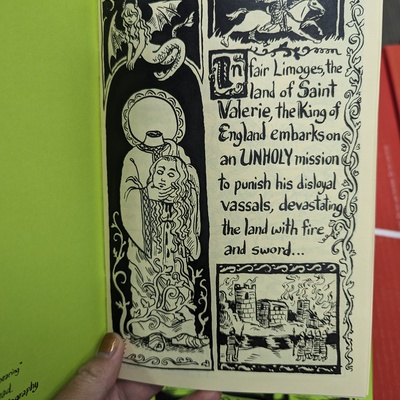 In fair Limoges, the
land of Saint
Valerie, the King of
England embarks on
an UNHOLY mission
to punish his disloyal
vassals, devastating
the land with fire
and sword...